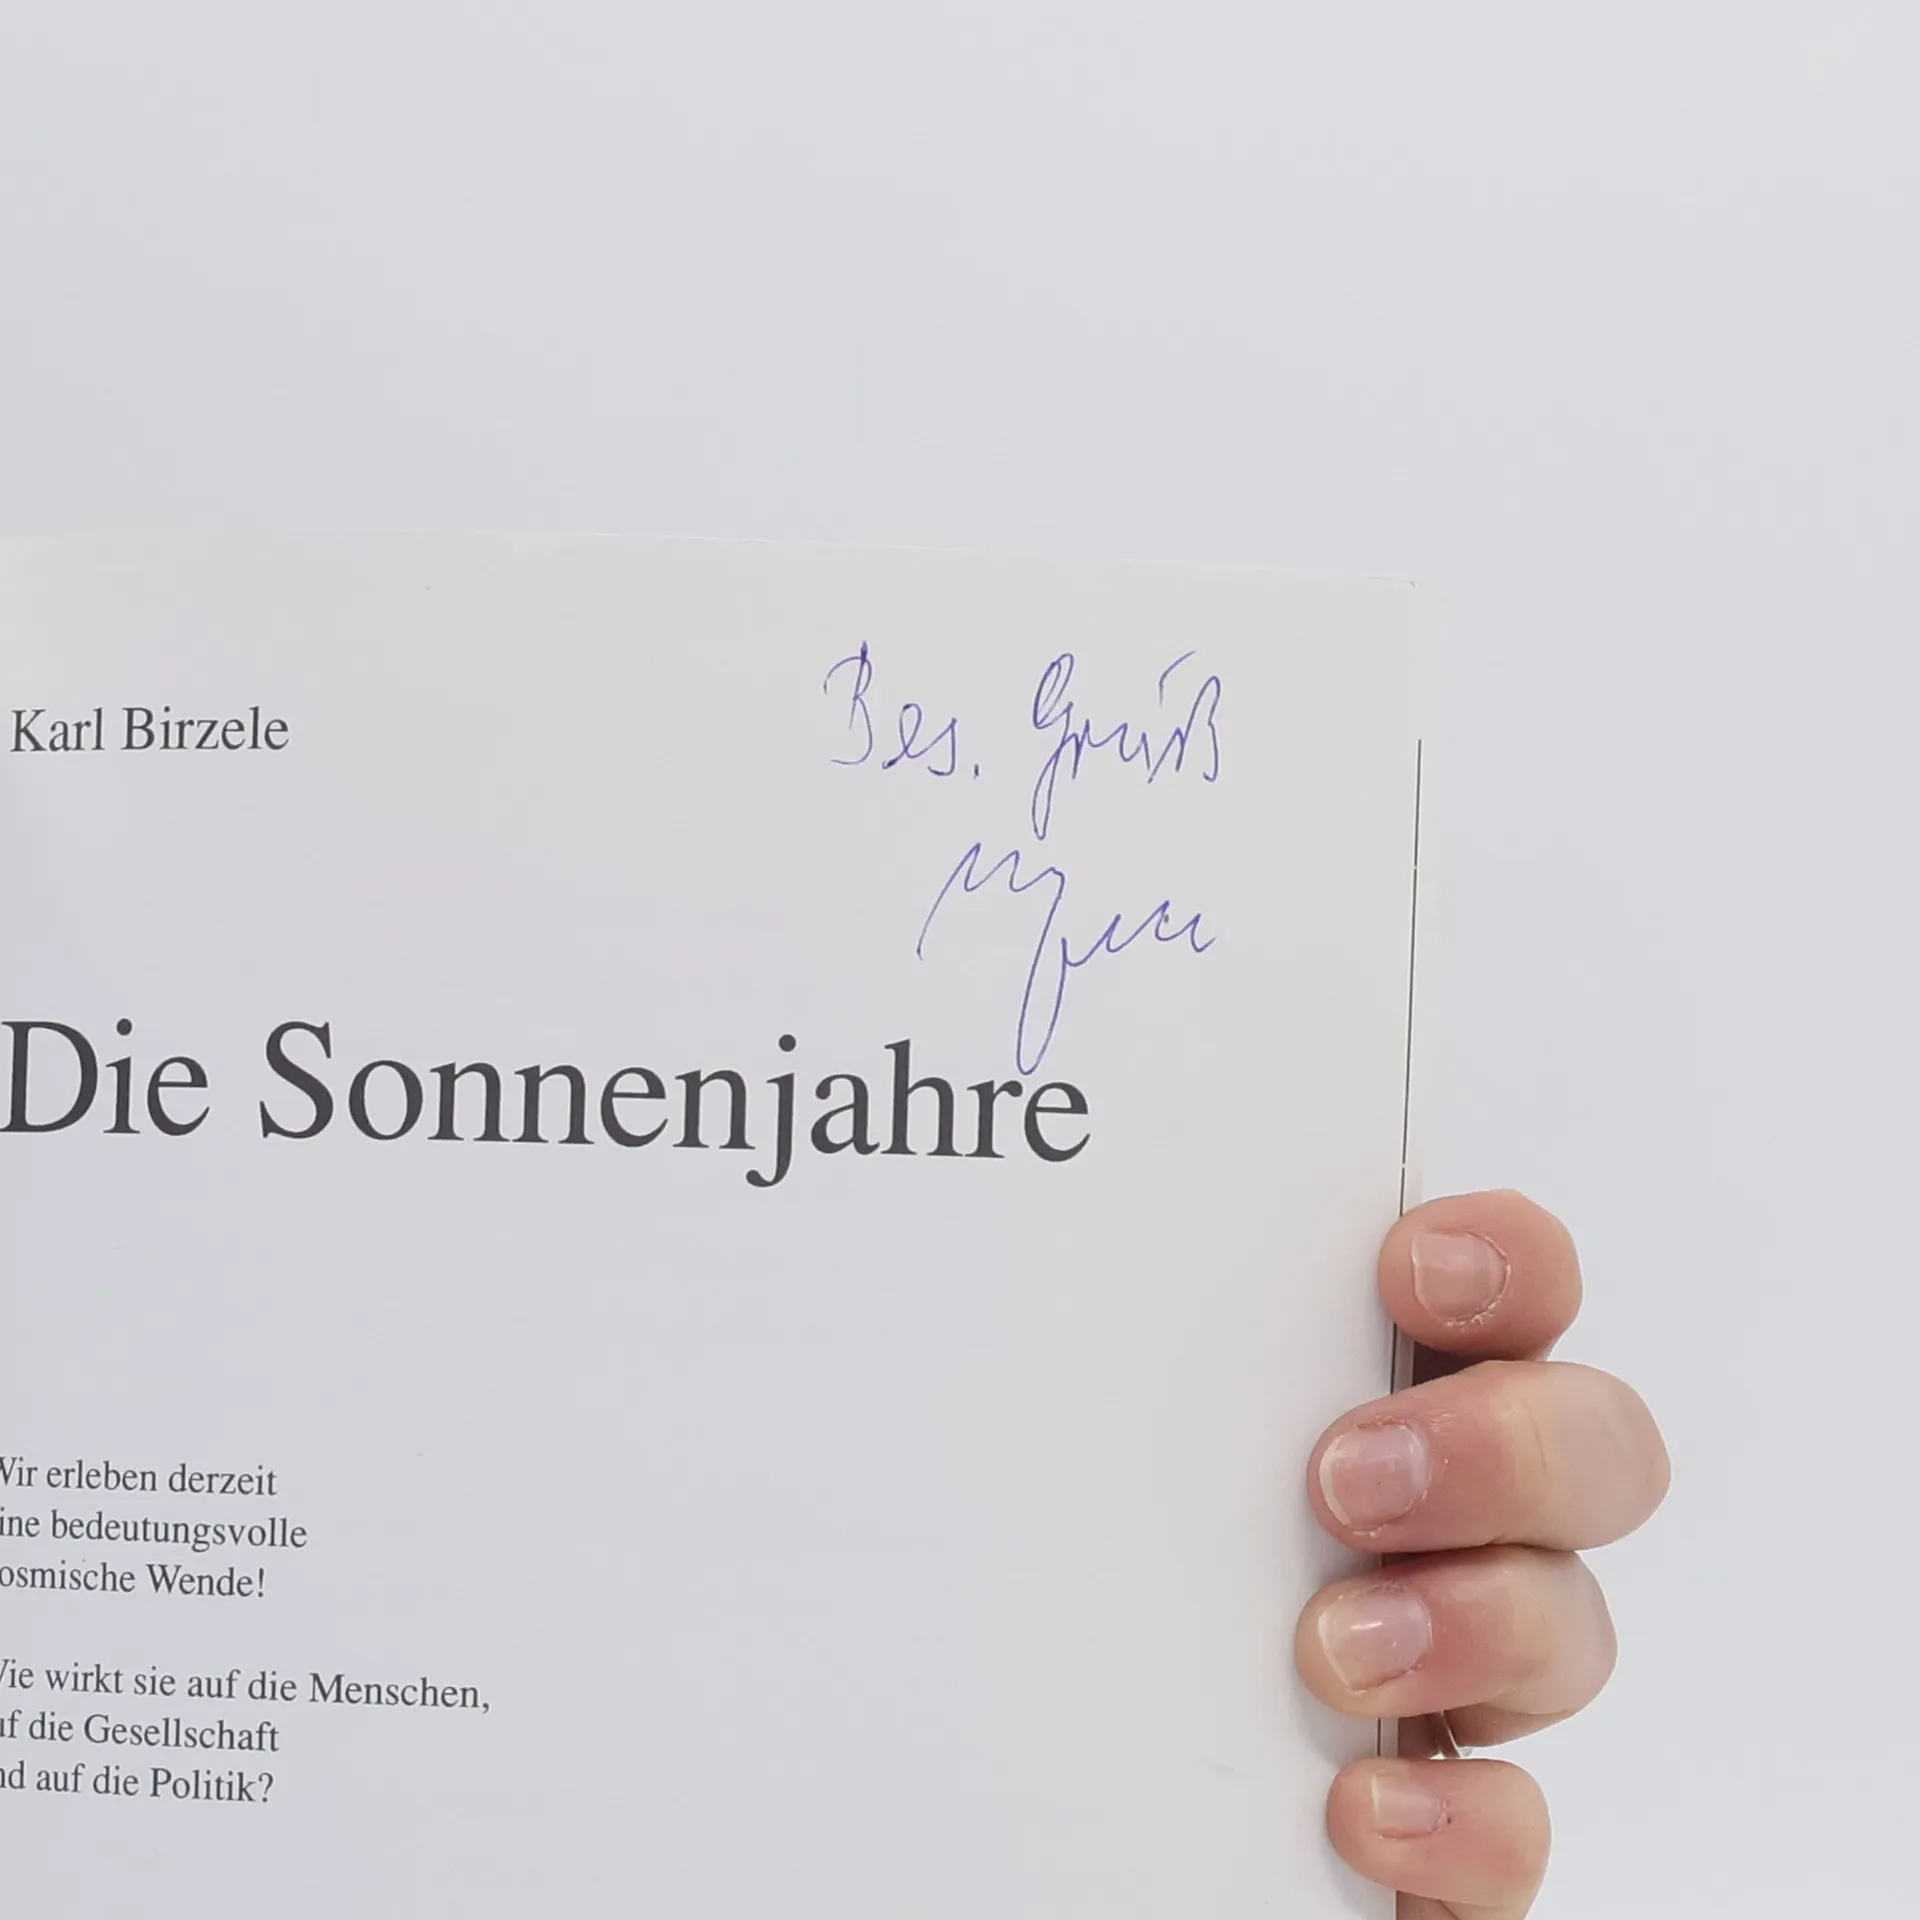 Karl Birzele
Bes. Gruß
Die Sonnenjahre
Wir erleben derzeit
ine bedeutungsvolle
osmische Wende!
Wie wirkt sie auf die Menschen,
uf die Gesellschaft
nd auf die Politik?